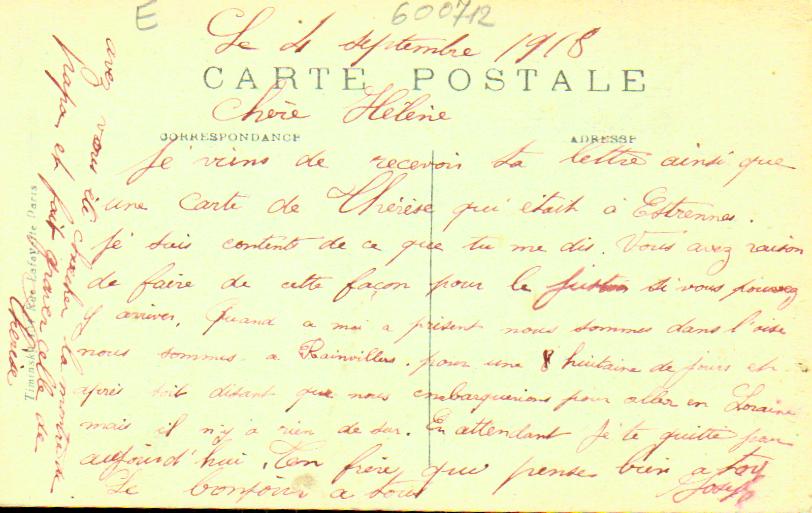 E
600712
Le 4 septembre 1918
CARTE POSTALE
Chère Hélène
CORRESPONDANCE
ADRESSE
Je viens de recevoir ta lettre ainsi que
une carte de Thérèse qui était à Estrennes.
Je suis contents de ce que tu me dis. Vous avez raison
de faire de cette façon pour le si vous pouvez
y arriver. Quand a moi a présent nous sommes dans l'oise
nous sommes a Rainvillers. pour une 8 huitaine de jours et
après soit disant que nous embarquerions pour aller en Loraine
mais il n'y a rien de sur. En attendant je te quitte pour
aujourd'hui. Ton frère qui pense bien a toi
Le bonjour a tous Joseph
avez vous été chercher la montre de
papa et fait graver celle de
Thérèse
Rue Lafayette Paris